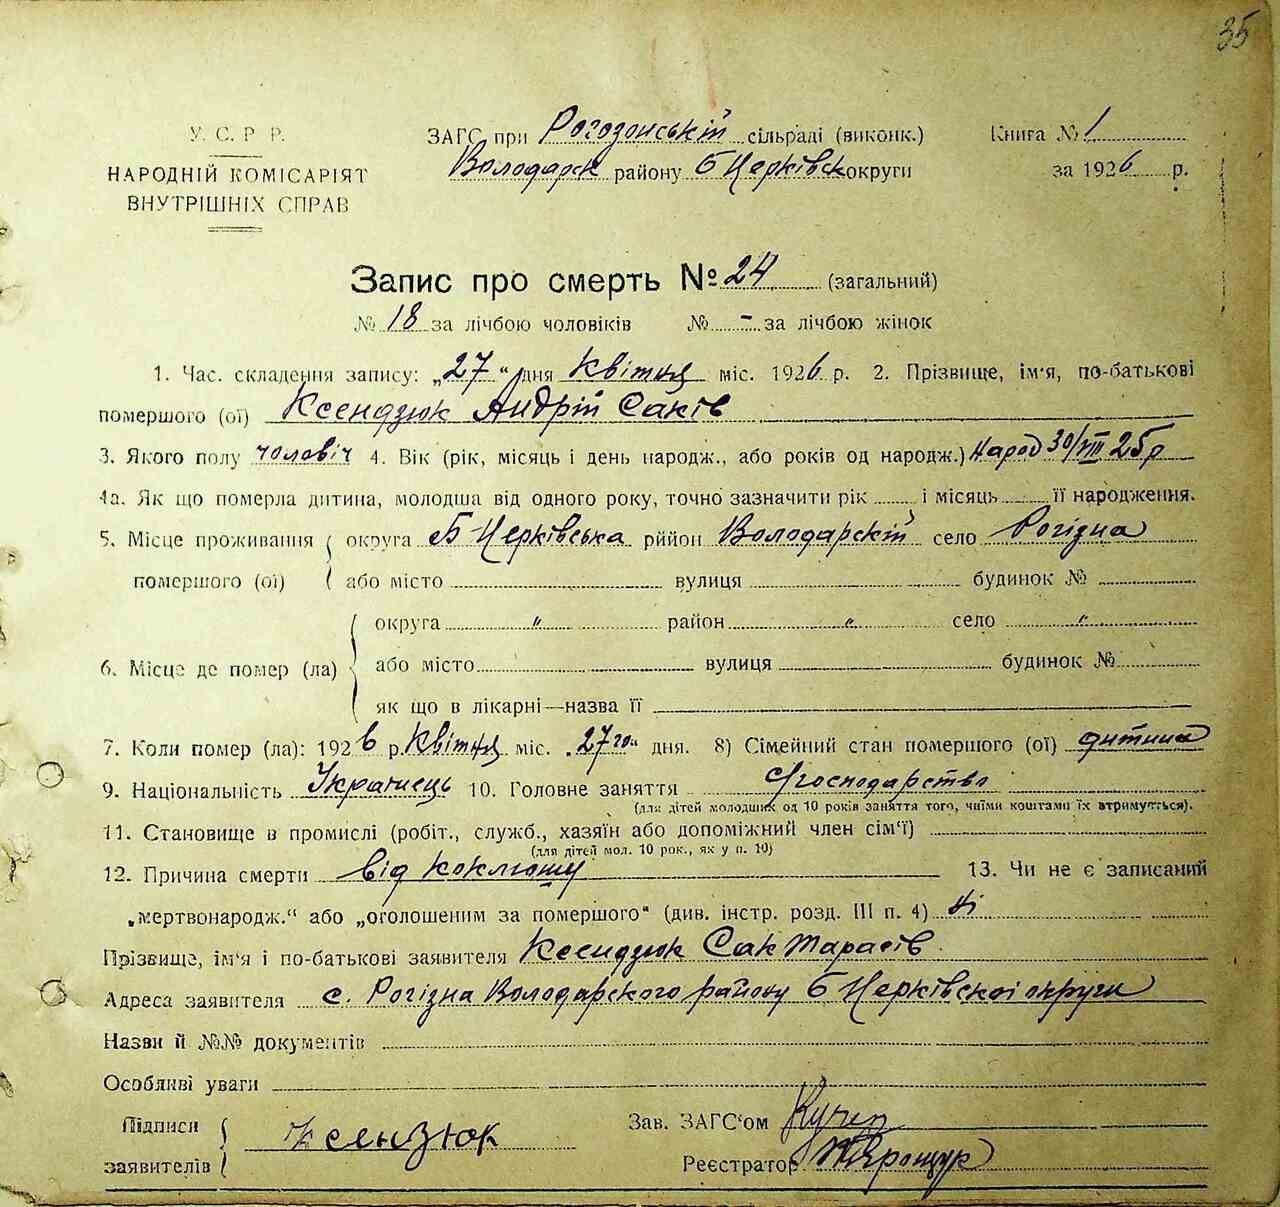 35
У. С. Р. Р.
НАРОДНІЙ КОМІСАРІЯТ
ВНУТРІШНІХ СПРАВ
ЗАГС при Рогозонській сільраді (виконк.)
Володарск району Б Церківск округи
Книга № 1
за 1926 р.
Запис про смерть № 24 (загальний)
№ 18 за лічбою чоловіків № - за лічбою жінок
1. Час. складення запису: „27" дня Квітня міс. 1926 р. 2. Прізвище, ім'я, по-батькові
помершого (ої) Ксендзюк Андрій Саків
3. Якого полу чоловіч 4. Вік (рік, місяць і день народж., або років од народж.) Народ 30/VIII 25 р
4а. Як що померла дитина, молодша від одного року, точно зазначити рік і місяць її народження.
5. Місце проживання округа Б-Церківська рййон Володарскій село Рогізна
помершого (ої) або місто вулиця будинок №
округа " район " село "
6. Місце де помер (ла) або місто вулиця будинок №
як що в лікарні—назва її
7. Коли помер (ла): 1926 р. Квітня міс. „27го" дня. 8) Сімейний стан помершого (ої) дитина
9. Національність Українець 10. Головне заняття господарство
(для дітей молодших од 10 років заняття того, чиїми коштами їх втримується).
11. Становище в промислі (робіт., служб., хазяїн або допоміжний член сім'ї)
(для дітей мол. 10 рок., як у п. 10)
12. Причина смерти від коклюшу 13. Чи не є записаний
„мертвонародж." або „оголошеним за помершого" (див. інстр. розд. III п. 4) ні
Прізвище, ім'я і по-батькові заявителя Ксендзюк Сак Тарасів
Адреса заявителя с. Рогізна Володарского району Б Церківскоі округи
Назви й №№ документів
Особливі уваги
Підписи
заявителів Ксензюк
Зав. ЗАГС'ом Кучер
Реєстратор